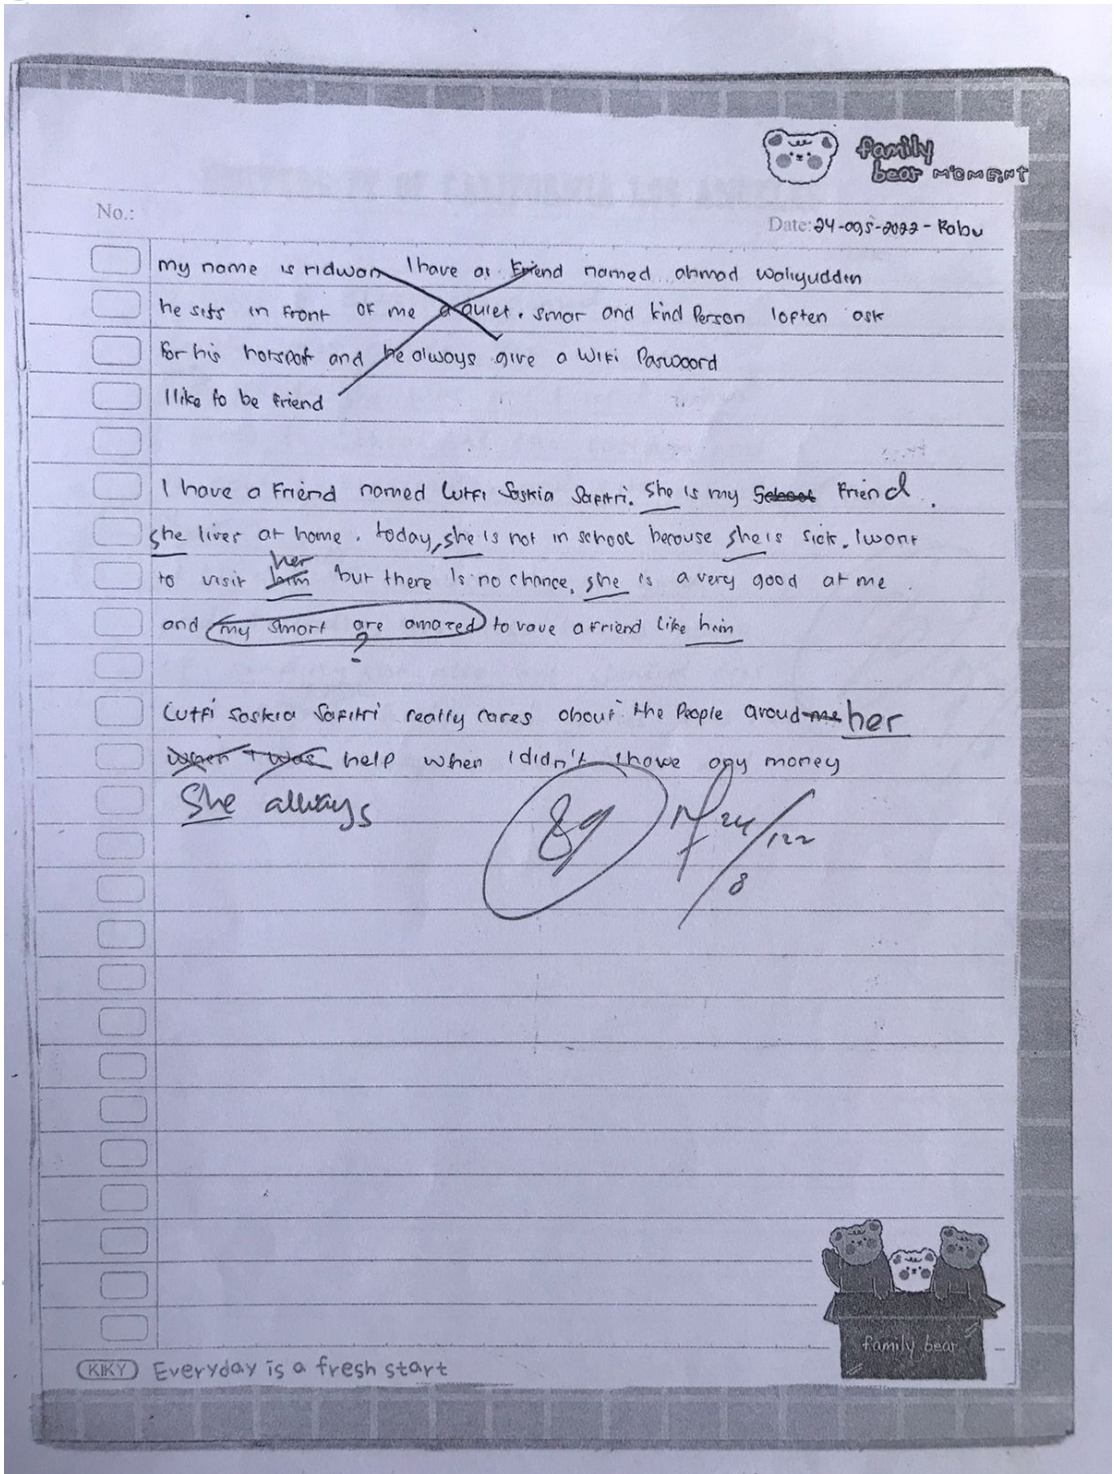 family
bear MOMENT
No.:
Date: 24-095-2022 - Rabu
my name is ridwan I have as Friend named ahmad waliyudden
he sits in front of me a quiet. smar and kind Person I often ask
for his hotspot and he always give a Wifi Parwoord
I like to be friend
I have a Friend named Lutfi Saskia Safitri. She is my School Friend.
she lives at home. today, she is not in school because she is sick. I want
her
to visit him but there is no chance, she is a very good at me.
and my smart are amazed to vave a friend like him
?
Lutfi Saskia Safitri really cares about the People aroud me her
When I was help when I didn't thave any money
She always
89
24/122
8
family bear
KIKY Everyday is a fresh start